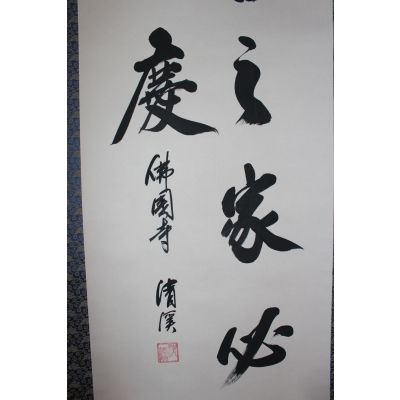 之家必
慶
佛國寺 清溪